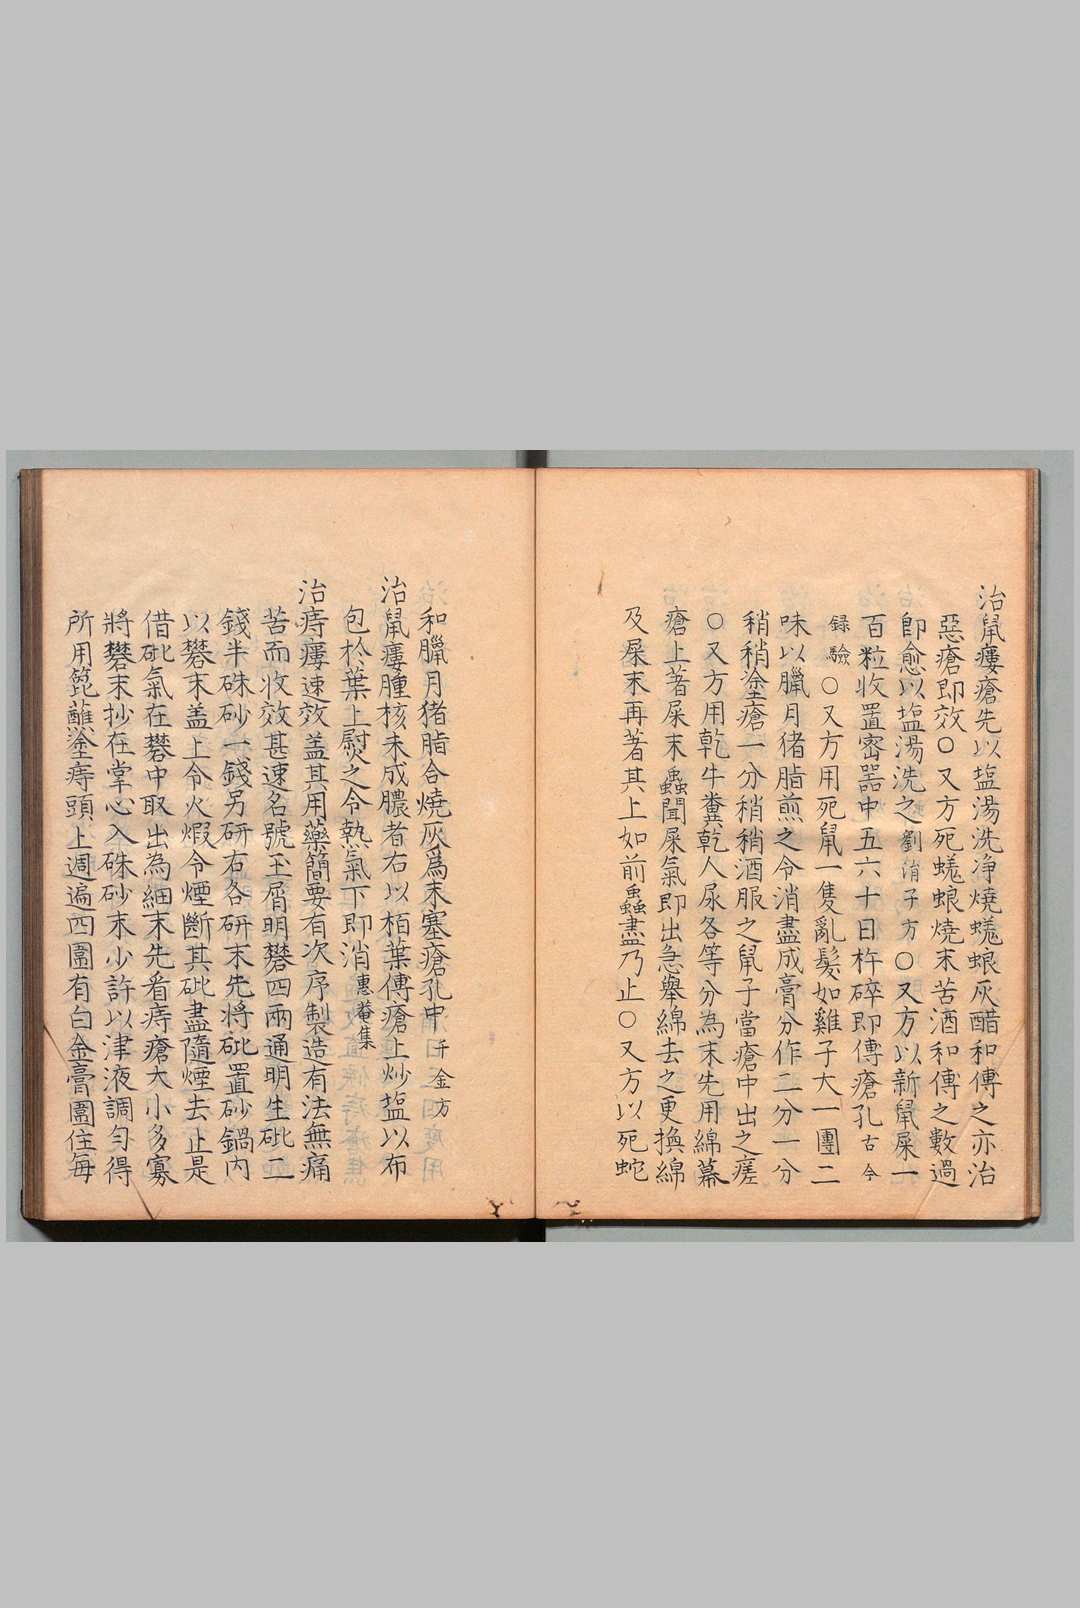 治鼠瘻瘡先以塩湯洗净燒蜣蜋灰醋和傅之亦治
惡瘡即效〇又方死蜣蜋燒末苦酒和傅之數過
即愈以塩湯洗之劉涓子方〇又方以新鼠屎一
百粒收置密器中五六十日杵碎即傅瘡孔古今
録驗〇又方用死鼠一隻亂髮如雞子大一團二
味以臘月猪脂煎之令消盡成膏分作二分一分
稍稍塗瘡一分稍稍酒服之鼠子當瘡中出之瘥
〇又方用乾牛糞乾人尿各等分為末先用綿幕
瘡上著屎末蟲聞屎氣即出急舉綿去之更換綿
及屎末再著其上如前蟲盡乃止〇又方以死蛇
和臘月猪脂合燒灰爲末塞瘡孔中千金方
治鼠瘻腫核未成膿者右以栢葉傅瘡上炒塩以布
包於葉上熨之令熱氣下即消惠菴集
治痔瘻速效盖其用藥簡要有次序製造有法無痛
苦而收效甚速名號玉屑明礬四兩通明生砒二
錢半硃砂一錢另研右各研末先將砒置砂鍋内
以礬末盖上令火煆令煙斷其砒盡隨煙去止是
借砒氣在礬中取出為細末先看痔瘡大小多寡
將礬末抄在掌心入硃砂末少許以津液調匀得
所用篦蘸塗痔頭上週遍四圍有白金膏圍住每